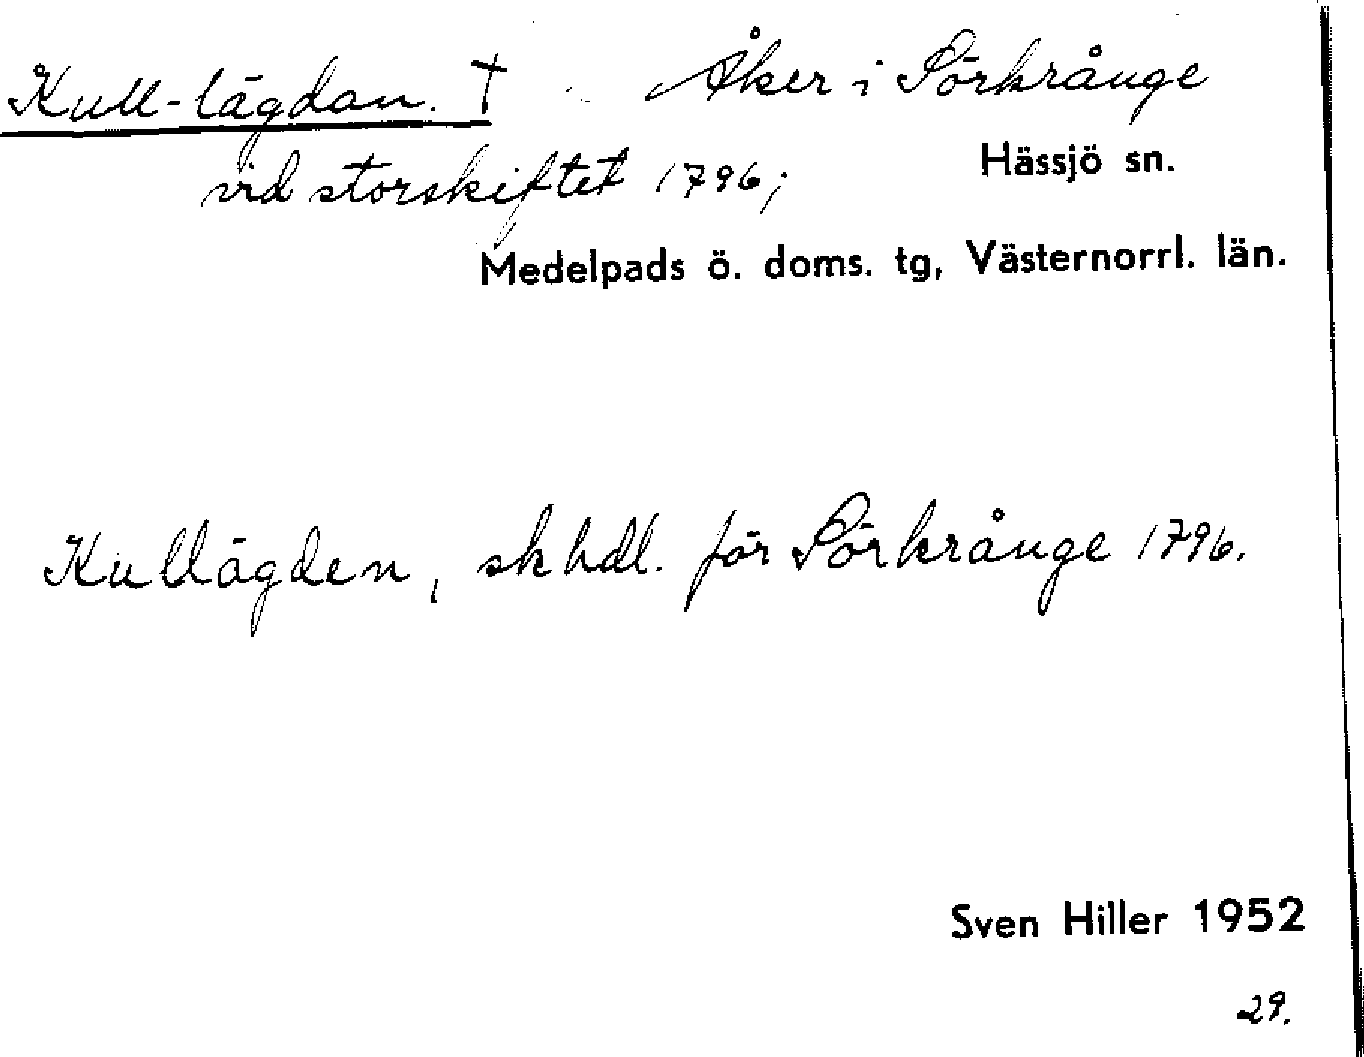 Kull-lägdan. † Åker i Sörkrånge
vid storskiftet 1796;
Hässjö sn.
Medelpads ö. doms. tg, Västernorrl. län.
Kullägden, sk hdl. för Sörkrånge 1796.
Sven Hiller 1952
29.